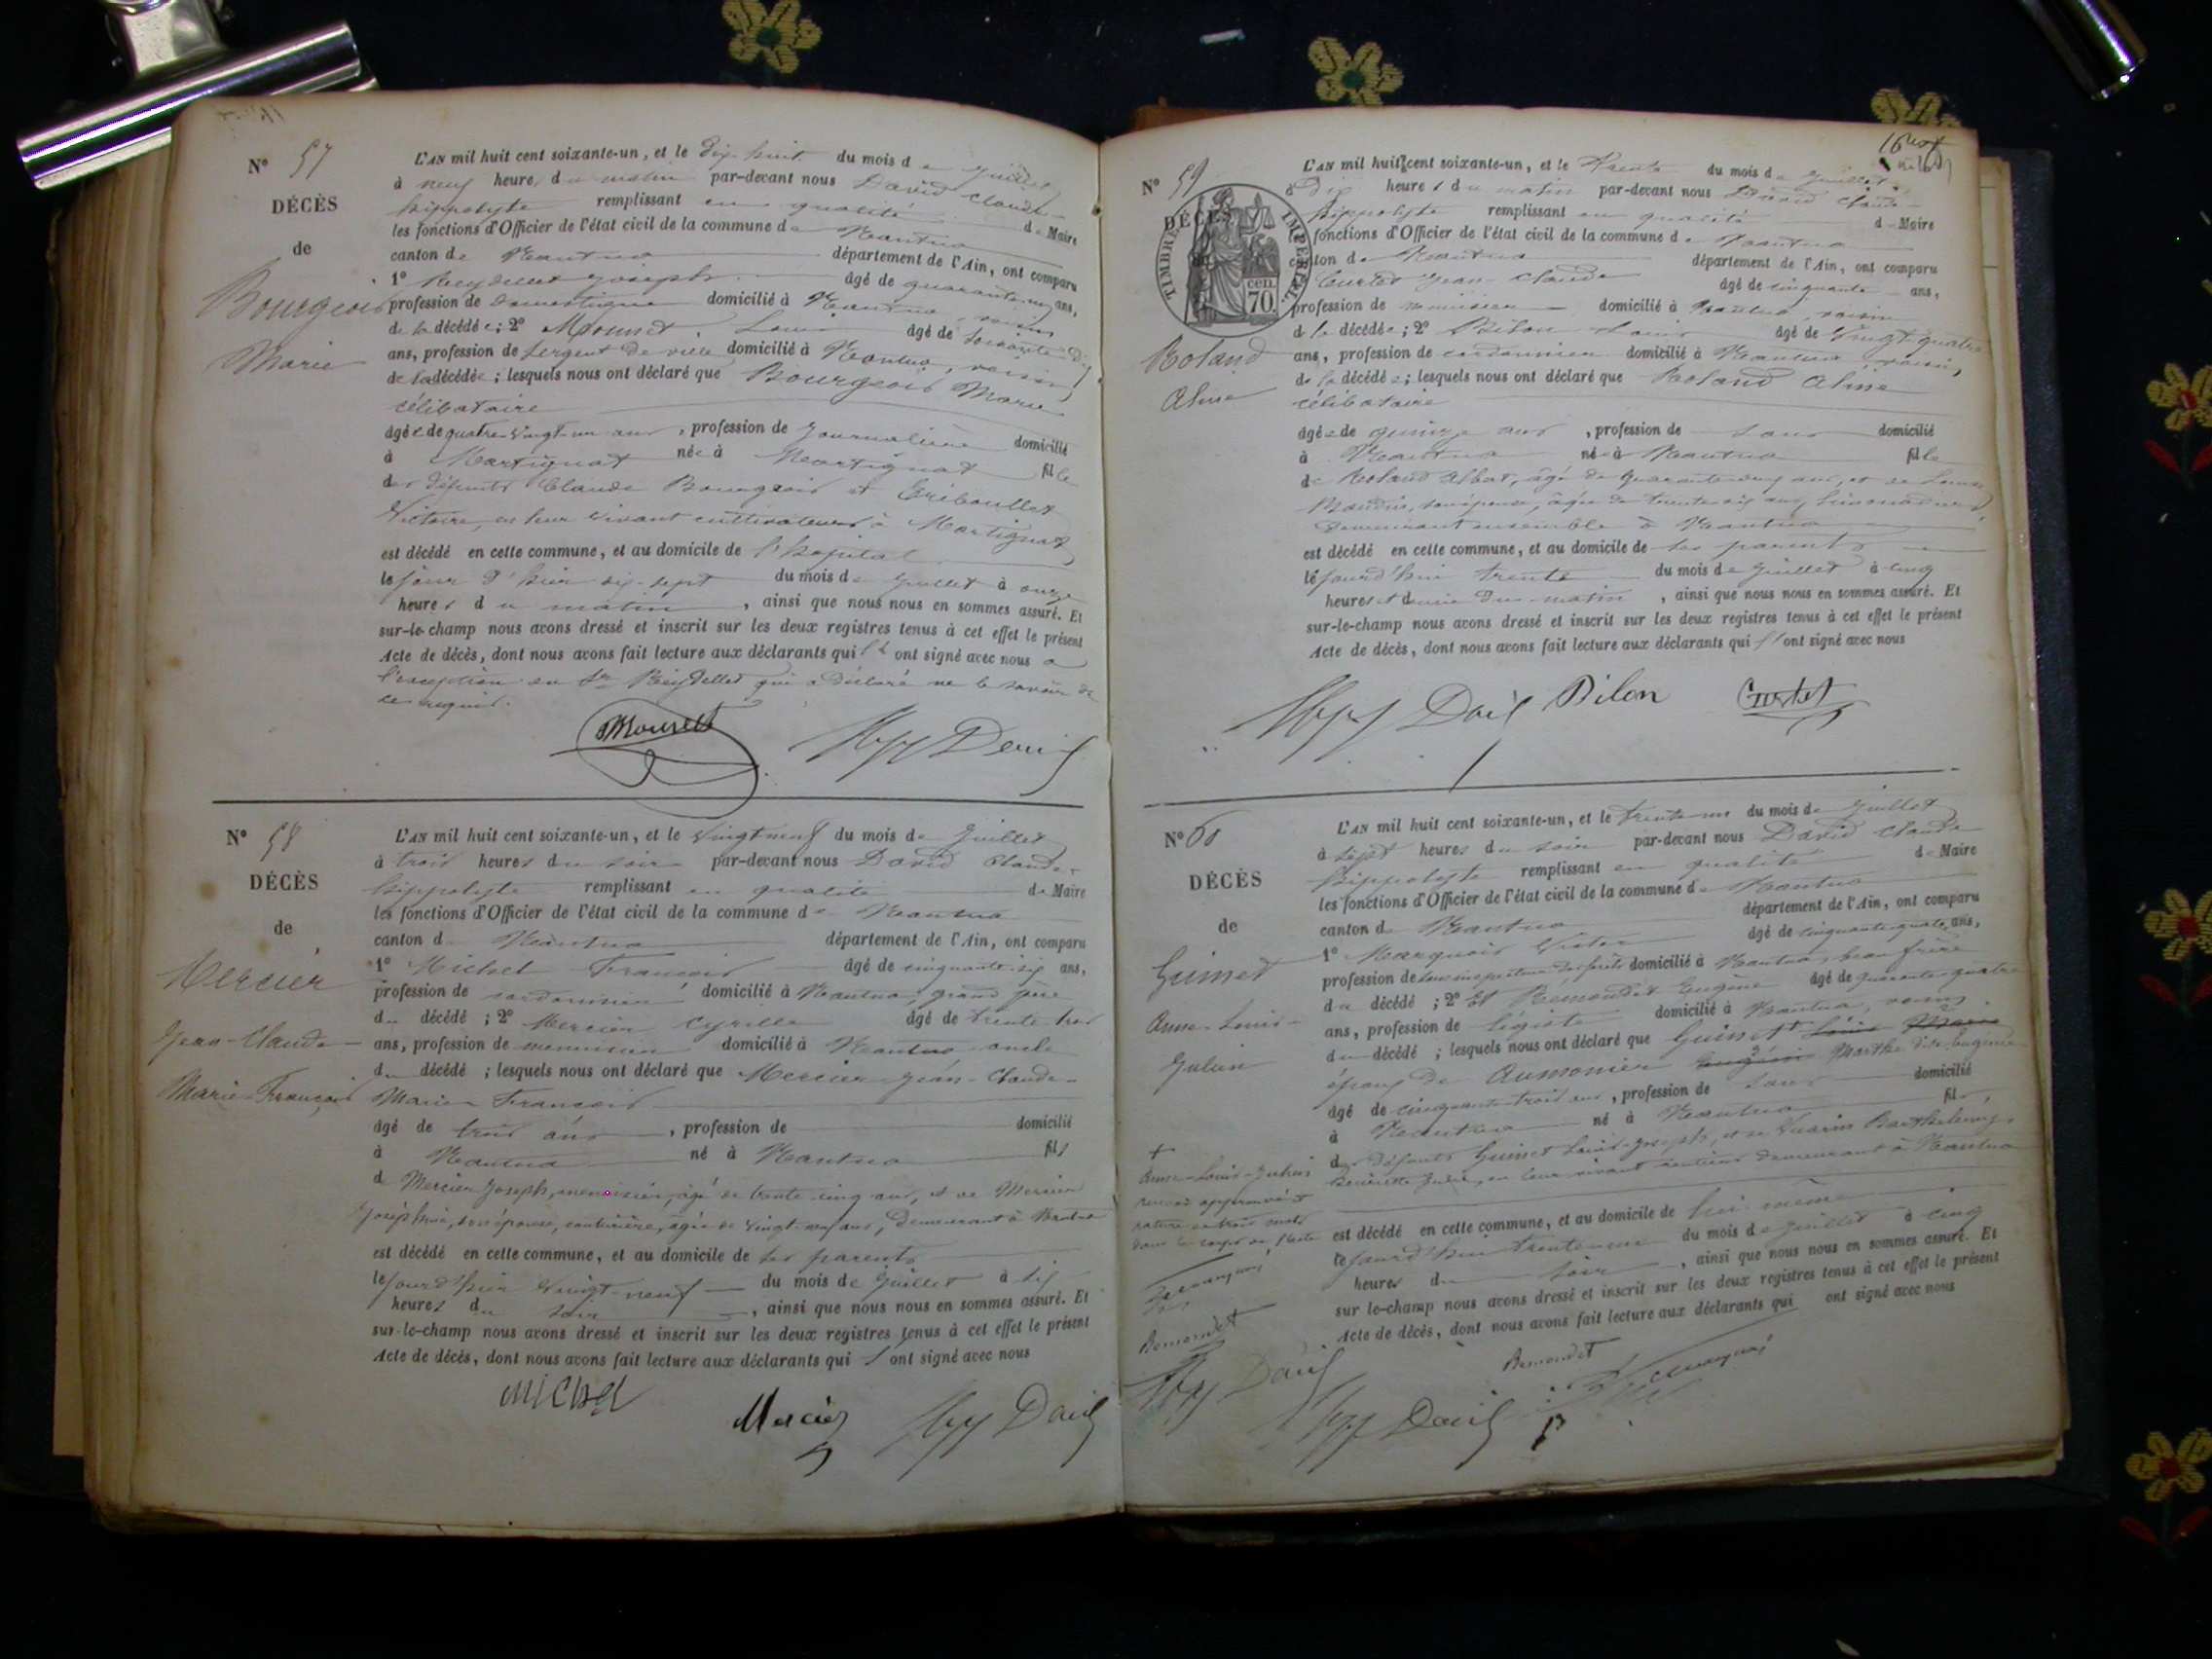 N° 57
DÉCÈS
de
Bourgeois
Marie
L'AN mil huit cent soixante-un, et le dix-huit du mois de Juillet
à neuf heures du matin par-devant nous David Claude-
hippolyte remplissant en qualité de Maire
les fonctions d'Officier de l'état civil de la commune de Nantua
canton de Nantua département de l'Ain, ont comparu
1° Reydellet Joseph âgé de quarante-un ans,
profession de domestique domicilié à Nantua, voisin
de la décédée; 2° Mounet Louis âgé de soixante-dix
ans, profession de sergent de ville domicilié à Nantua, voisin
de la décédée; lesquels nous ont déclaré que Bourgeois Marie
célibataire
âgée de quatre-vingt-un ans, profession de journalière domicilié
à Martignat née à Martignat fille
des défunts Claude Bourgeois et Griboullet
Victoire, en leur vivant cultivateurs à Martignat
est décédé en cette commune, et au domicile de l'hôpital
le jour d'hier dix-sept du mois de Juillet à onze
heures du matin, ainsi que nous nous en sommes assuré. Et
sur-le-champ nous avons dressé et inscrit sur les deux registres tenus à cet effet le présent
Acte de décès, dont nous avons fait lecture aux déclarants qui l' ont signé avec nous à
l'exception du Sr Reydellet qui a déclaré ne le savoir de
ce requis.
N° 58
DÉCÈS
de
Mercier
Jean-Claude-
Marie-François
L'AN mil huit cent soixante-un, et le vingt neuf du mois de Juillet
à trois heures du soir par-devant nous David Claude-
hippolyte remplissant en qualité de Maire
les fonctions d'Officier de l'état civil de la commune de Nantua
canton de Nantua département de l'Ain, ont comparu
1° Michel François âgé de cinquante-six ans,
profession de cordonnier domicilié à Nantua, grand père
du décédé; 2° Mercier Cyrille âgé de trente-trois
ans, profession de menuisier domicilié à Nantua oncle
du décédé; lesquels nous ont déclaré que Mercier Jean-Claude-
Marie-François
âgé de trois ans, profession de domicilié
à Nantua né à Nantua fils
de Mercier Joseph, menuisier, âgé de trente-cinq ans, et de Mercier
Joséphine, son épouse, couturière, âgée de vingt-neuf ans, demeurant à Nantua
est décédé en cette commune, et au domicile de ses parents
le jourd'hui vingt-neuf du mois de Juillet à six
heures du soir, ainsi que nous nous en sommes assuré. Et
sur-le-champ nous avons dressé et inscrit sur les deux registres tenus à cet effet le présent
Acte de décès, dont nous avons fait lecture aux déclarants qui l'ont signé avec nous
Michel
Mercier
Hpp David
N° 59
DÉCÈS
TIMBRE IMPÉRIAL
70 cen.
Roland
Aline
L'AN mil huit cent soixante-un, et le trente du mois de Juillet
à dix heures du matin par-devant nous David Claude-
hippolyte remplissant en qualité de Maire
fonctions d'Officier de l'état civil de la commune de Nantua
canton de Nantua département de l'Ain, ont comparu
Curtet Jean-Claude âgé de cinquante ans,
profession de menuisier domicilié à Nantua, voisin
de la décédée; 2° Bilon Louis âgé de vingt-quatre
ans, profession de cordonnier domicilié à Nantua voisin,
de la décédée; lesquels nous ont déclaré que Roland Aline
célibataire
âgée de quinze ans, profession de sans domicilié
à Nantua née à Nantua fille
de Roland Albert, âgé de quarante-cinq ans, et de
son épouse, âgée de trente-six ans,
demeurant ensemble à Nantua
est décédé en cette commune, et au domicile de ses parents
le jourd'hui trente du mois de Juillet à cinq
heures et demie du matin, ainsi que nous nous en sommes assuré. Et
sur-le-champ nous avons dressé et inscrit sur les deux registres tenus à cet effet le présent
Acte de décès, dont nous avons fait lecture aux déclarants qui l'ont signé avec nous
Hpp David Bilon Curtet
N° 60
DÉCÈS
de
Guinet
Anne-Louis-
Julien
L'AN mil huit cent soixante-un, et le trente-un du mois de Juillet
à sept heures du soir par-devant nous David Claude
hippolyte remplissant en qualité de Maire
les fonctions d'Officier de l'état civil de la commune de Nantua
canton de Nantua département de l'Ain, ont comparu
1° Marquois Victor âgé de cinquante-quatre ans,
profession de sous inspecteur des forêts domicilié à Nantua, beau frère
du décédé; 2° Et Remondet Eugène âgé de quarante-quatre
ans, profession de légiste domicilié à Nantua, voisin
du décédé; lesquels nous ont déclaré que Guinet Louis Marie
époux de Aumonier Marthe dite Eugénie
âgé de cinquante-trois ans, profession de sans domicilié
à Nantua né à Nantua fils
des défunts Guinet Louis-Joseph, et de Barthelemy-
Julie, en leur vivant rentiers demeurant à Nantua
est décédé en cette commune, et au domicile de lui-même
le jourd'hui trente-un du mois de Juillet à cinq
heures du soir, ainsi que nous nous en sommes assuré. Et
sur-le-champ nous avons dressé et inscrit sur les deux registres tenus à cet effet le présent
Acte de décès, dont nous avons fait lecture aux déclarants qui ont signé avec nous
+
Anne-Louis-Julien
renvoi approuvé et
rature de trois mots
dans le corps de l'acte
Remondet
Hpp David
Remondet
Hpp David